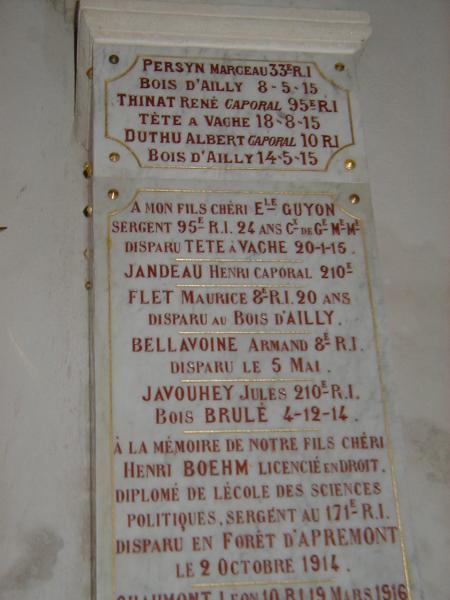 PERSYN MARCEAU 33E R.I
BOIS D'AILLY 8-5-15
THINAT RENÉ CAPORAL 95E R.I
TÊTE A VACHE 18-8-15
DUTHU ALBERT CAPORAL 10 R I
BOIS D'AILLY 14-5-15
A MON FILS CHÉRI ELE GUYON
SERGENT 95E R.I. 24 ANS CX DE GE ME ME
DISPARU TETE À VACHE 20-1-15
JANDEAU HENRI CAPORAL 210E
FLET MAURICE 8E R.I. 20 ANS
DISPARU AU BOIS D'AILLY.
BELLAVOINE ARMAND 8E R.I.
DISPARU LE 5 MAI.
JAVOUHEY JULES 210E R.I.
BOIS BRULÉ 4-12-14.
À LA MÉMOIRE DE NOTRE FILS CHÉRI
HENRI BOEHM LICENCIÉ EN DROIT.
DIPLOMÉ DE LÉCOLE DES SCIENCES
POLITIQUES, SERGENT AU 171E R.I.
DISPARU EN FORÊT D'APREMONT
LE 2 OCTOBRE 1914.
CHAUMONT LÉON 10 R I 19 MARS 1916